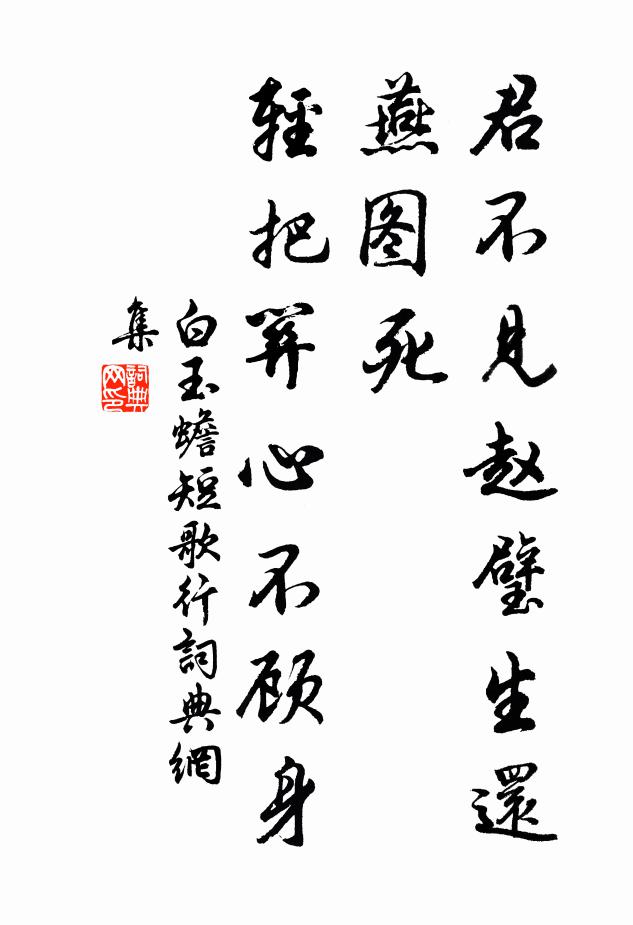 君不见赵璧生還
燕图死
輕把羿心不顾身
白玉蟾短歌行詞典網
集
詞典
网印